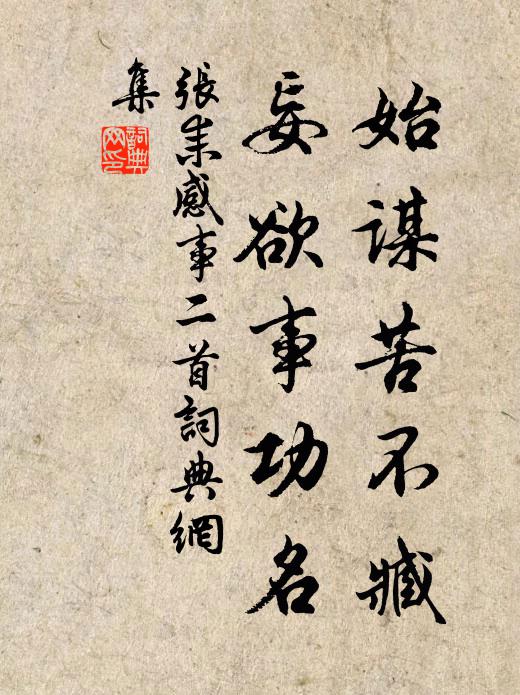 始謀苦不臧
妄欲事功名
張耒感事二首詞典網
集
詞典
网印